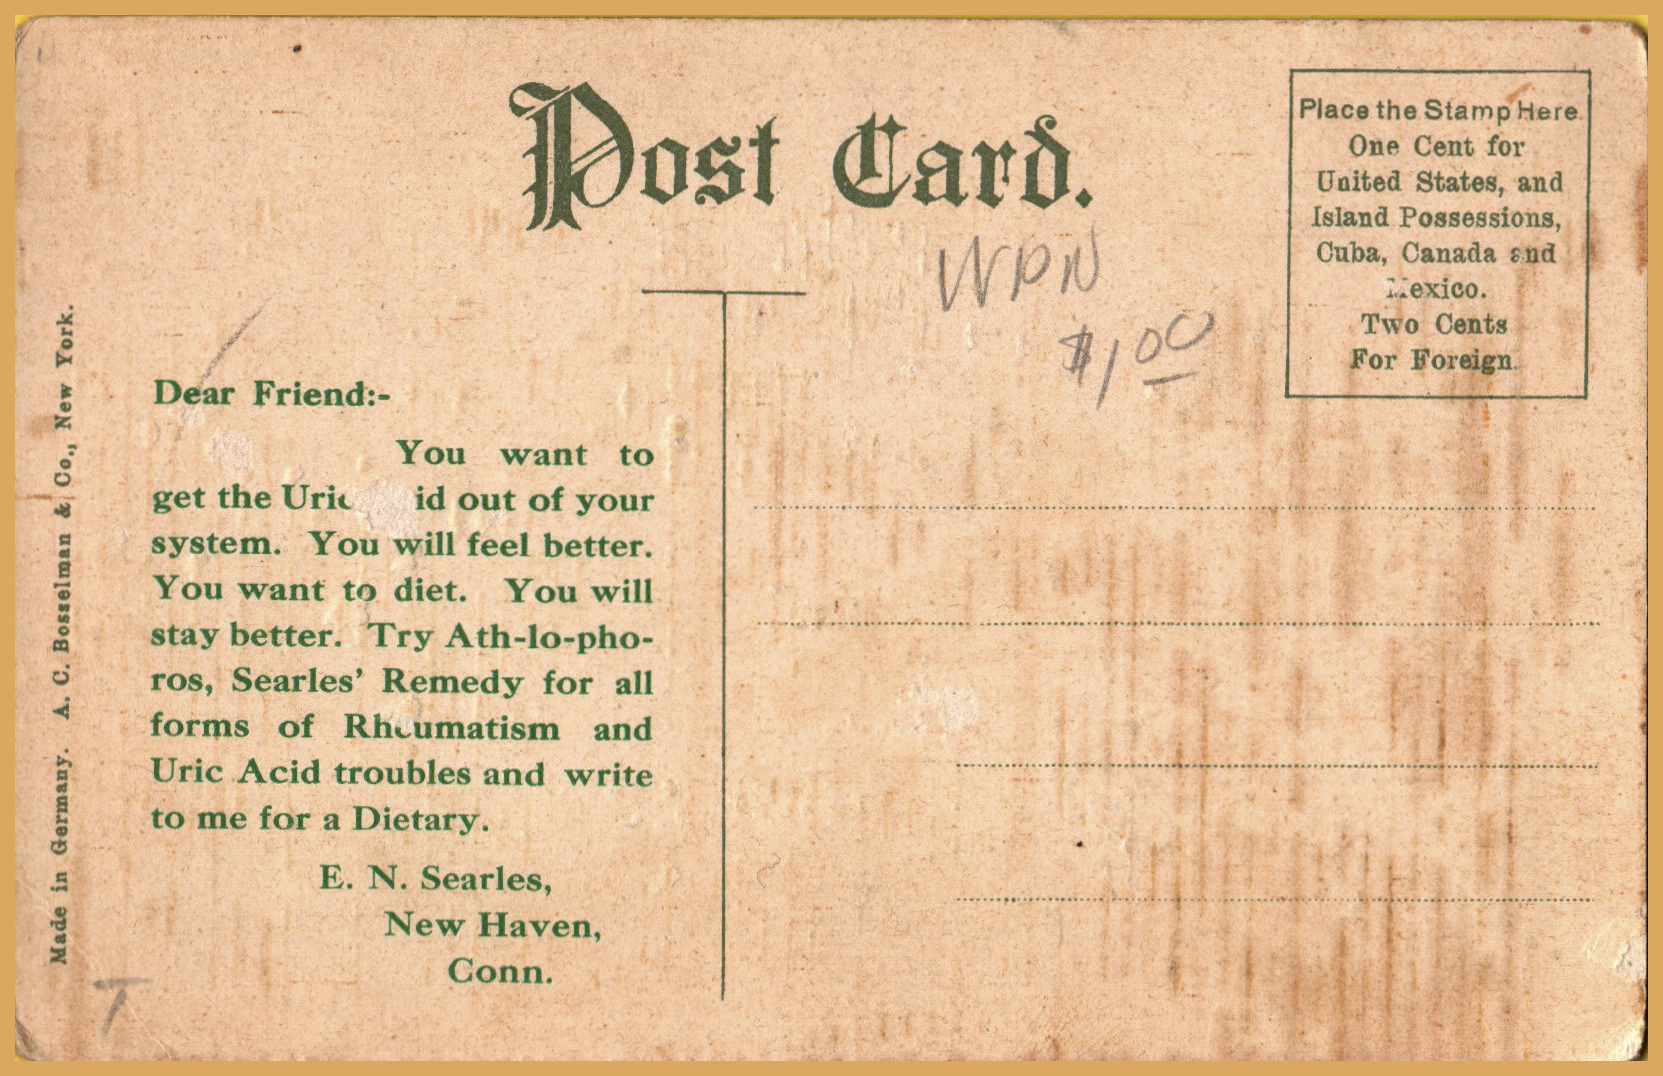 Post Card.
Place the Stamp Here
One Cent for
United States, and
Island Possessions,
Cuba, Canada and
Mexico.
Two Cents
For Foreign.
$1.00
Dear Friend:-
You want to
get the Uric id out of your
system. You will feel better.
You want to diet. You will
stay better. Try Ath-lo-pho-
ros, Searles' Remedy for all
forms of Rheumatism and
Uric Acid troubles and write
to me for a Dietary.
E. N. Searles,
New Haven,
Conn.
Made in Germany. A. C. Bosselman & Co., New York.
T